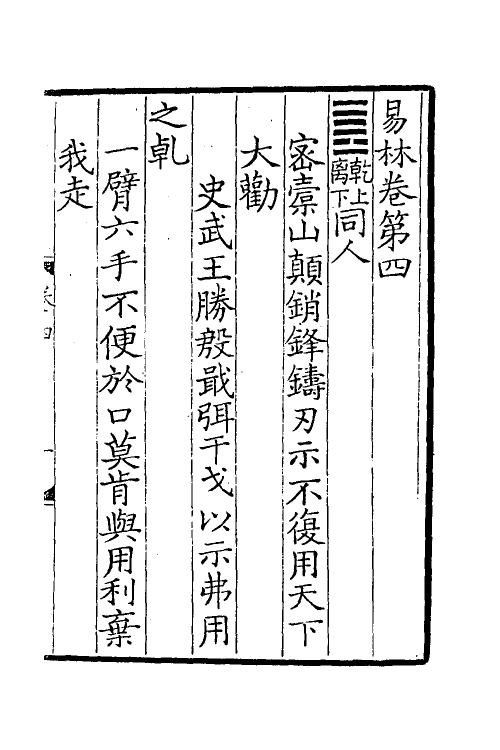 易林卷第四
乾上離下同人
密橐山顛銷鋒鑄刃示不復用天下
大勸
史武王勝殷戢弭干戈以示弗用
之乹
一臂六手不便於口莫肯與用利棄
我走